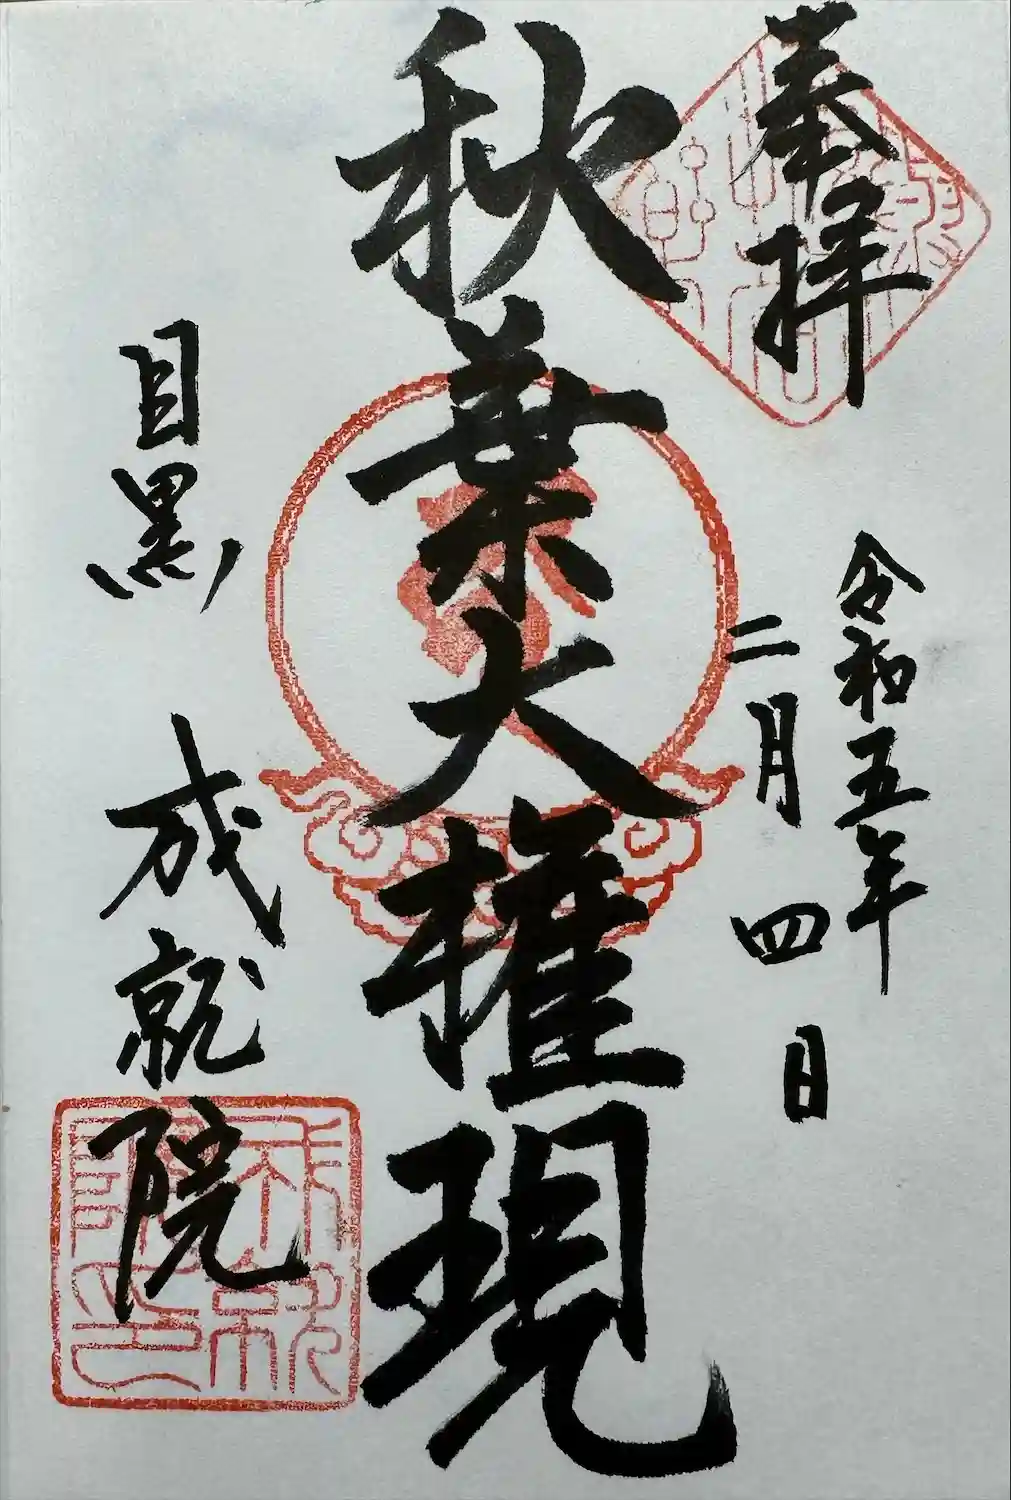 奉拝
令和五年
二月四日
秋葉大権現
目黒 成就院
成就
院印